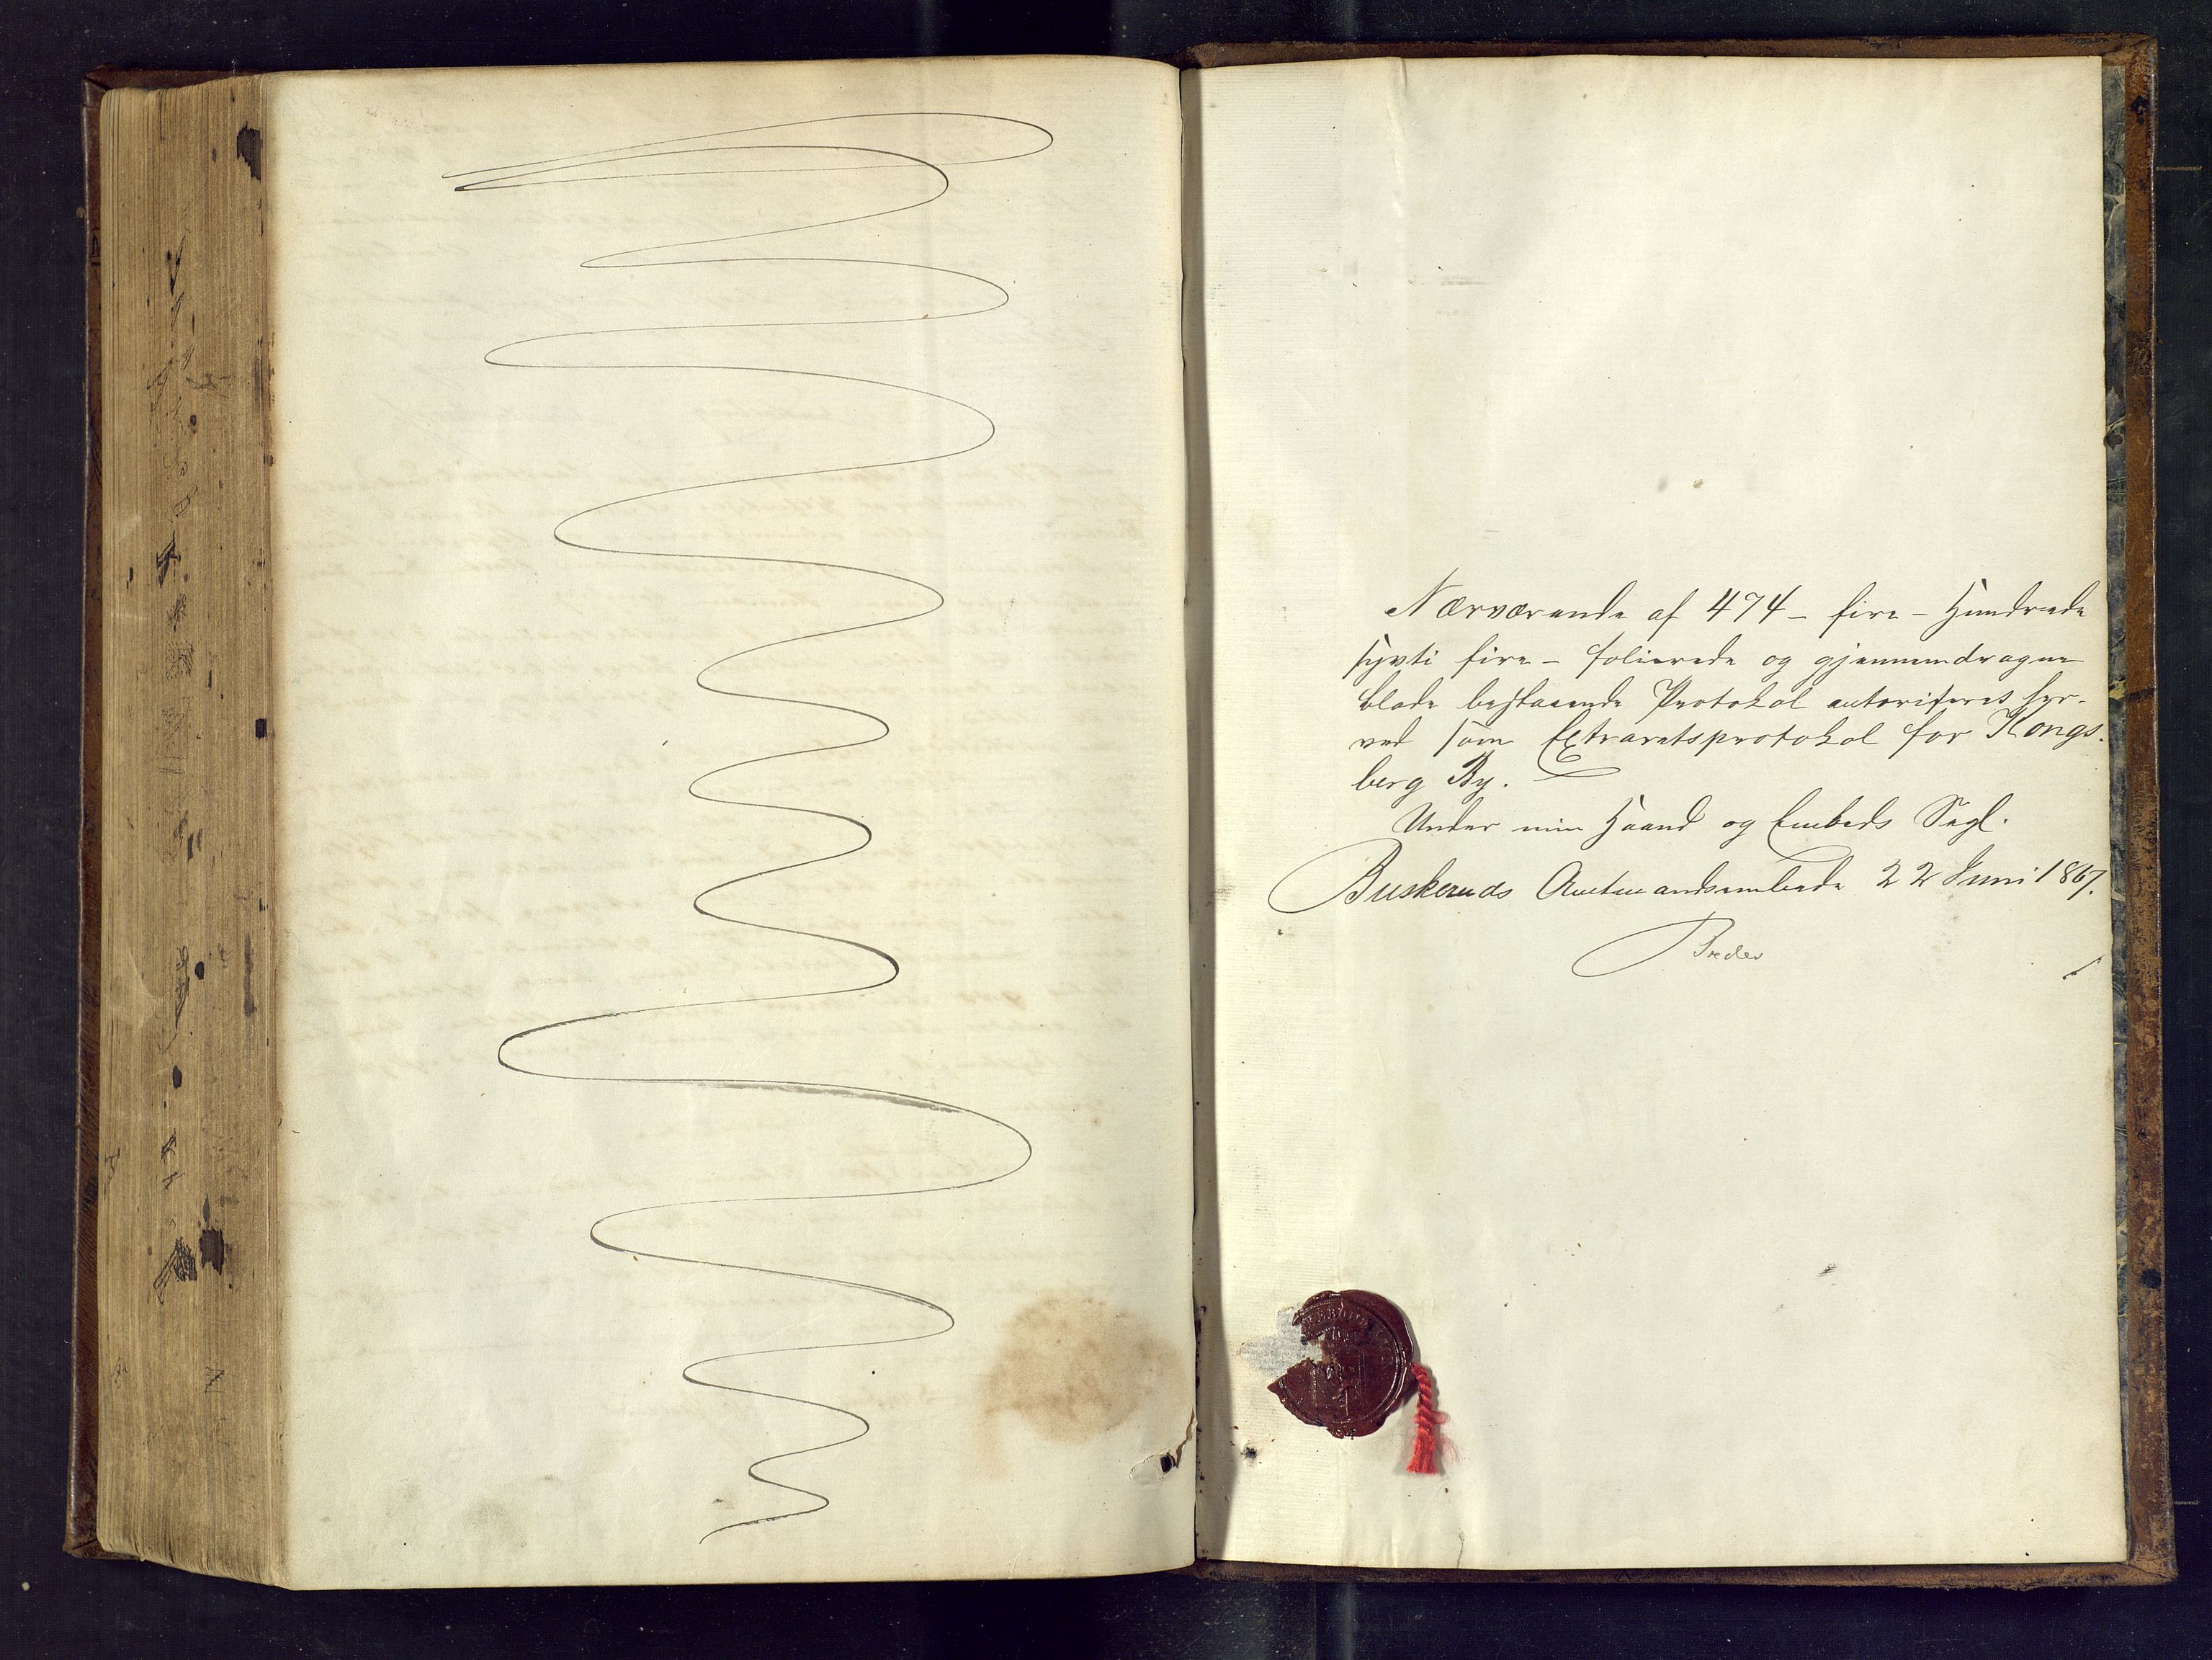 Nærværende af 474 – fire – Hundrede
syvti fire – folierede og gjennemdragne
blade bestaaende Protokol autoriseres her-
ved som Extraretsprotokol for Kongs-
berg By.
Under min Haand og Embeds Segl.
Buskeruds Amtmandsembede 22 Juni 1867.